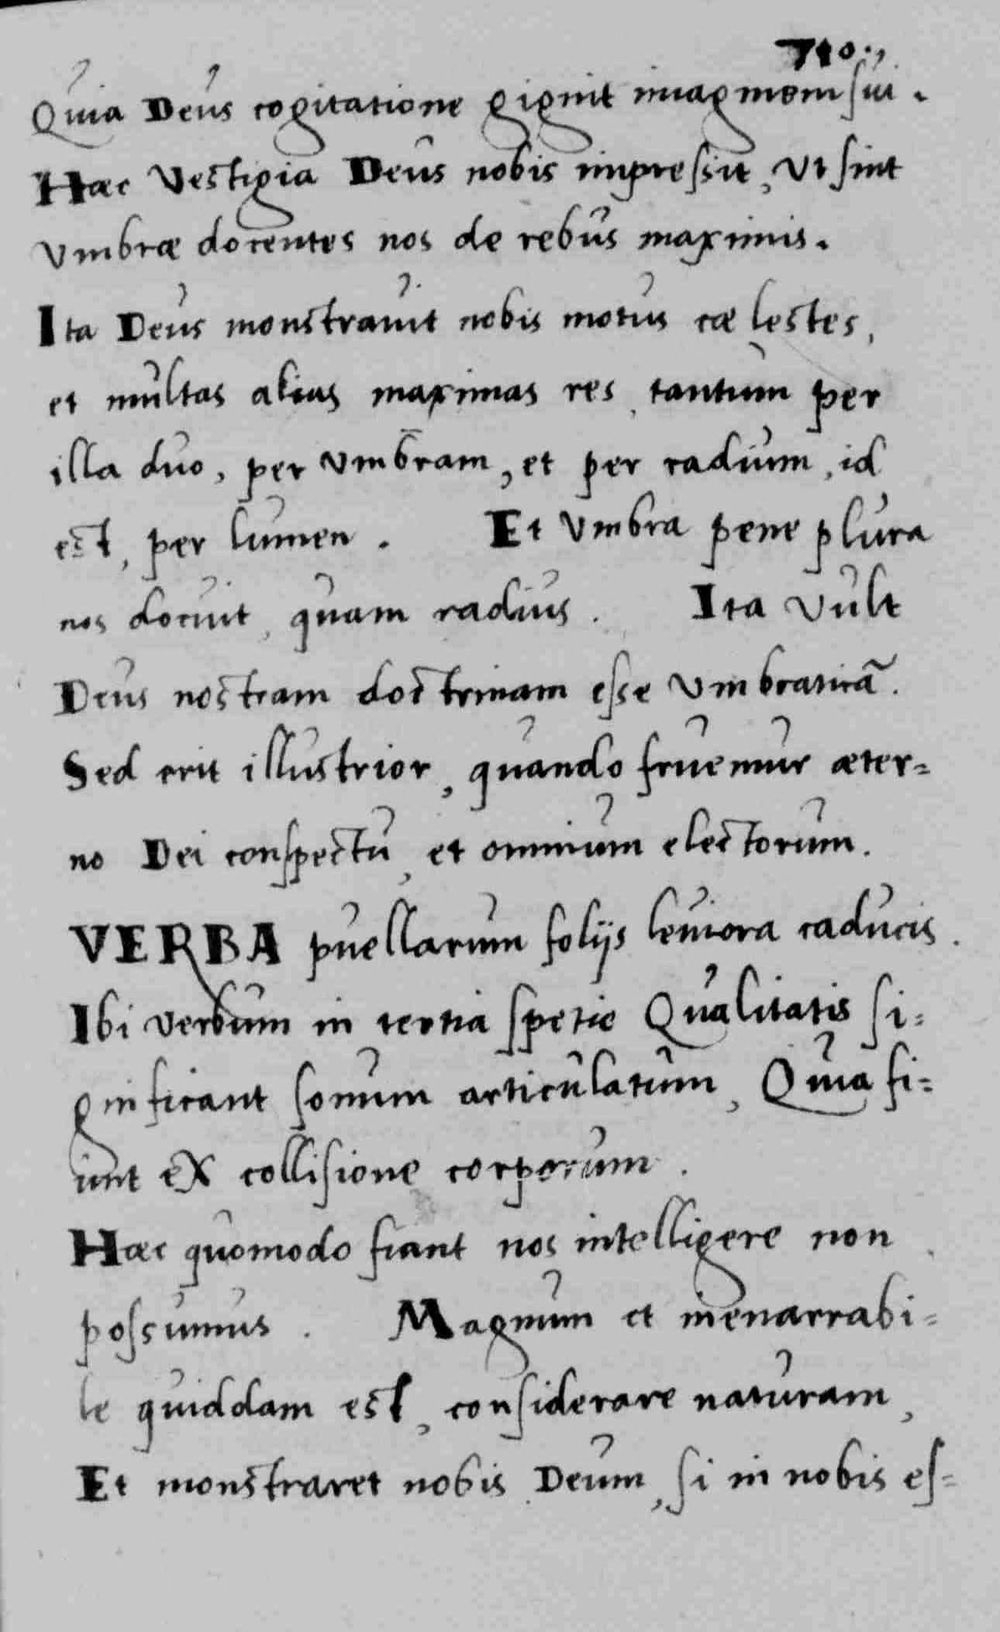 710.
Quia Deus cogitatione gignit imaginem sui.
Haec Vestigia Deus nobis impressit, Vt sint
Vmbrae docentes nos de rebus maximis.
Ita Deus monstrauit nobis motus cae lestes,
et multas alias maximas res, tantum per
illa duo, per Vmbram, et per radium, id
est, per lumen. Et Vmbra pene plura
nos docuit, quam radius. Ita Vult
Deus nostram doctrinam esse Vmbraticã.
Sed erit illustrior, quando fruemur aeter=
no Dei conspectu, et omnium electorum.
VERBA puellarum folijs leuiora caducis.
Ibi Verbum in tertia spetie Qualitatis si=
gnificant sonum articulatum, Quia fi=
unt ex collisione corporum.
Haec quomodo fiant nos intelligere non
possumus. Magnum et inenarrabi=
le quiddam est, considerare naturam,
Et monstraret nobis Deum, si in nobis es=